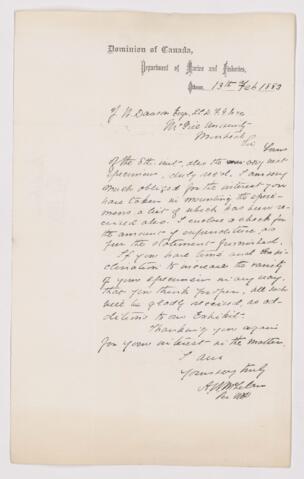 Dominion of Canada,
Department of Marine and Fisheries,
Ottawa, 13th Feb 1883
J. W. Dawson Esq. LL.D. F.G.S.
McGill University
Montreal
Sir Yours
of the 8th inst. also the
specimens, duly recd. I am very
much obliged for the interest you
have taken in mounting the speci-
mens a list of which has been re-
ceived also. I enclose a check for
the amount of expenditure as
per the statement furnished.
If you have time and the in-
clination to increase the variety
of your specimens in any way,
that you think proper, all such
will be gladly received, as ad-
ditions to our Exhibit.
Thanking you again
for your interest in the matter,
I am
Yours very truly